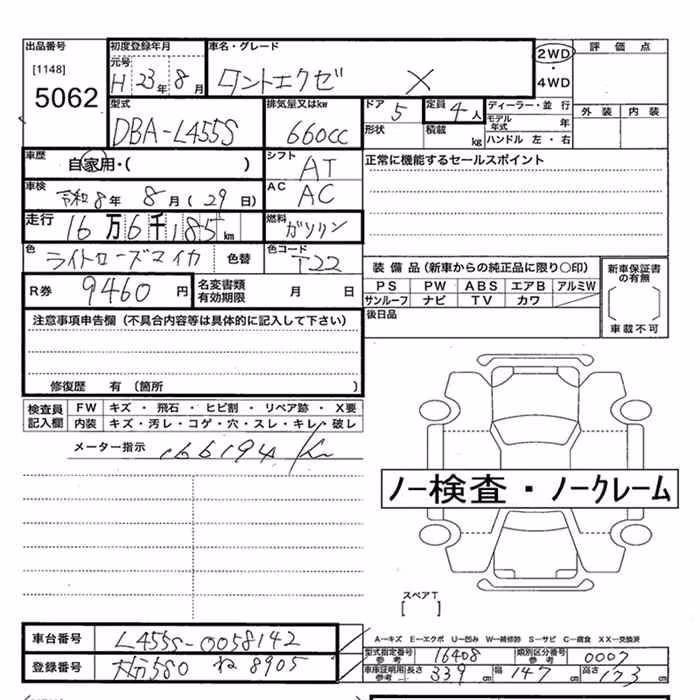 出品番号 初度登録年月 車名・グレード 2WD 評価点
[1148] 元号 ・
5062 H 23年 8月 タントエクゼ X 4WD
型式 排気量又はkw ドア 5 定員 4人 ディーラー・並行 外装 内装
DBA-L455S 660cc 形状 積載 kg モデル年式 年
ハンドル 左・右
車歴 自家用・( ) シフト AT 正常に機能するセールスポイント
車検 令和8年 8月(29日) AC AC
走行 16万6千185km 燃料 ガソリン
色 ライトローズマイカ 色替 色コード T22
装備品(新車からの純正品に限り○印) 新車保証書の有無
R券 9460円 名変書類有効期限 月 日 PS PW ABS エアB アルミW
サンルーフ ナビ TV カワ
注意事項申告欄(不具合内容等は具体的に記入して下さい) 後日品 車載不可
修復歴 有 (箇所 )
検査員 FW キズ・飛石・ヒビ割・リペア跡・X要
記入欄 内装 キズ・汚レ・コゲ・穴・スレ・キレ・破レ
メーター指示 166194 km
ノー検査・ノークレーム
スペアT
[ ]
車台番号 L455S-0058142 A—キズ E—エクボ U—凹み W—補修跡 S—サビ C—腐食 XX—交換済
型式指定番号 参考 16408 類別区分番号 参考 0007
登録番号 大分580 ね8905 車庫証明用 参考 長さ 339cm 幅 147cm 高さ 173cm